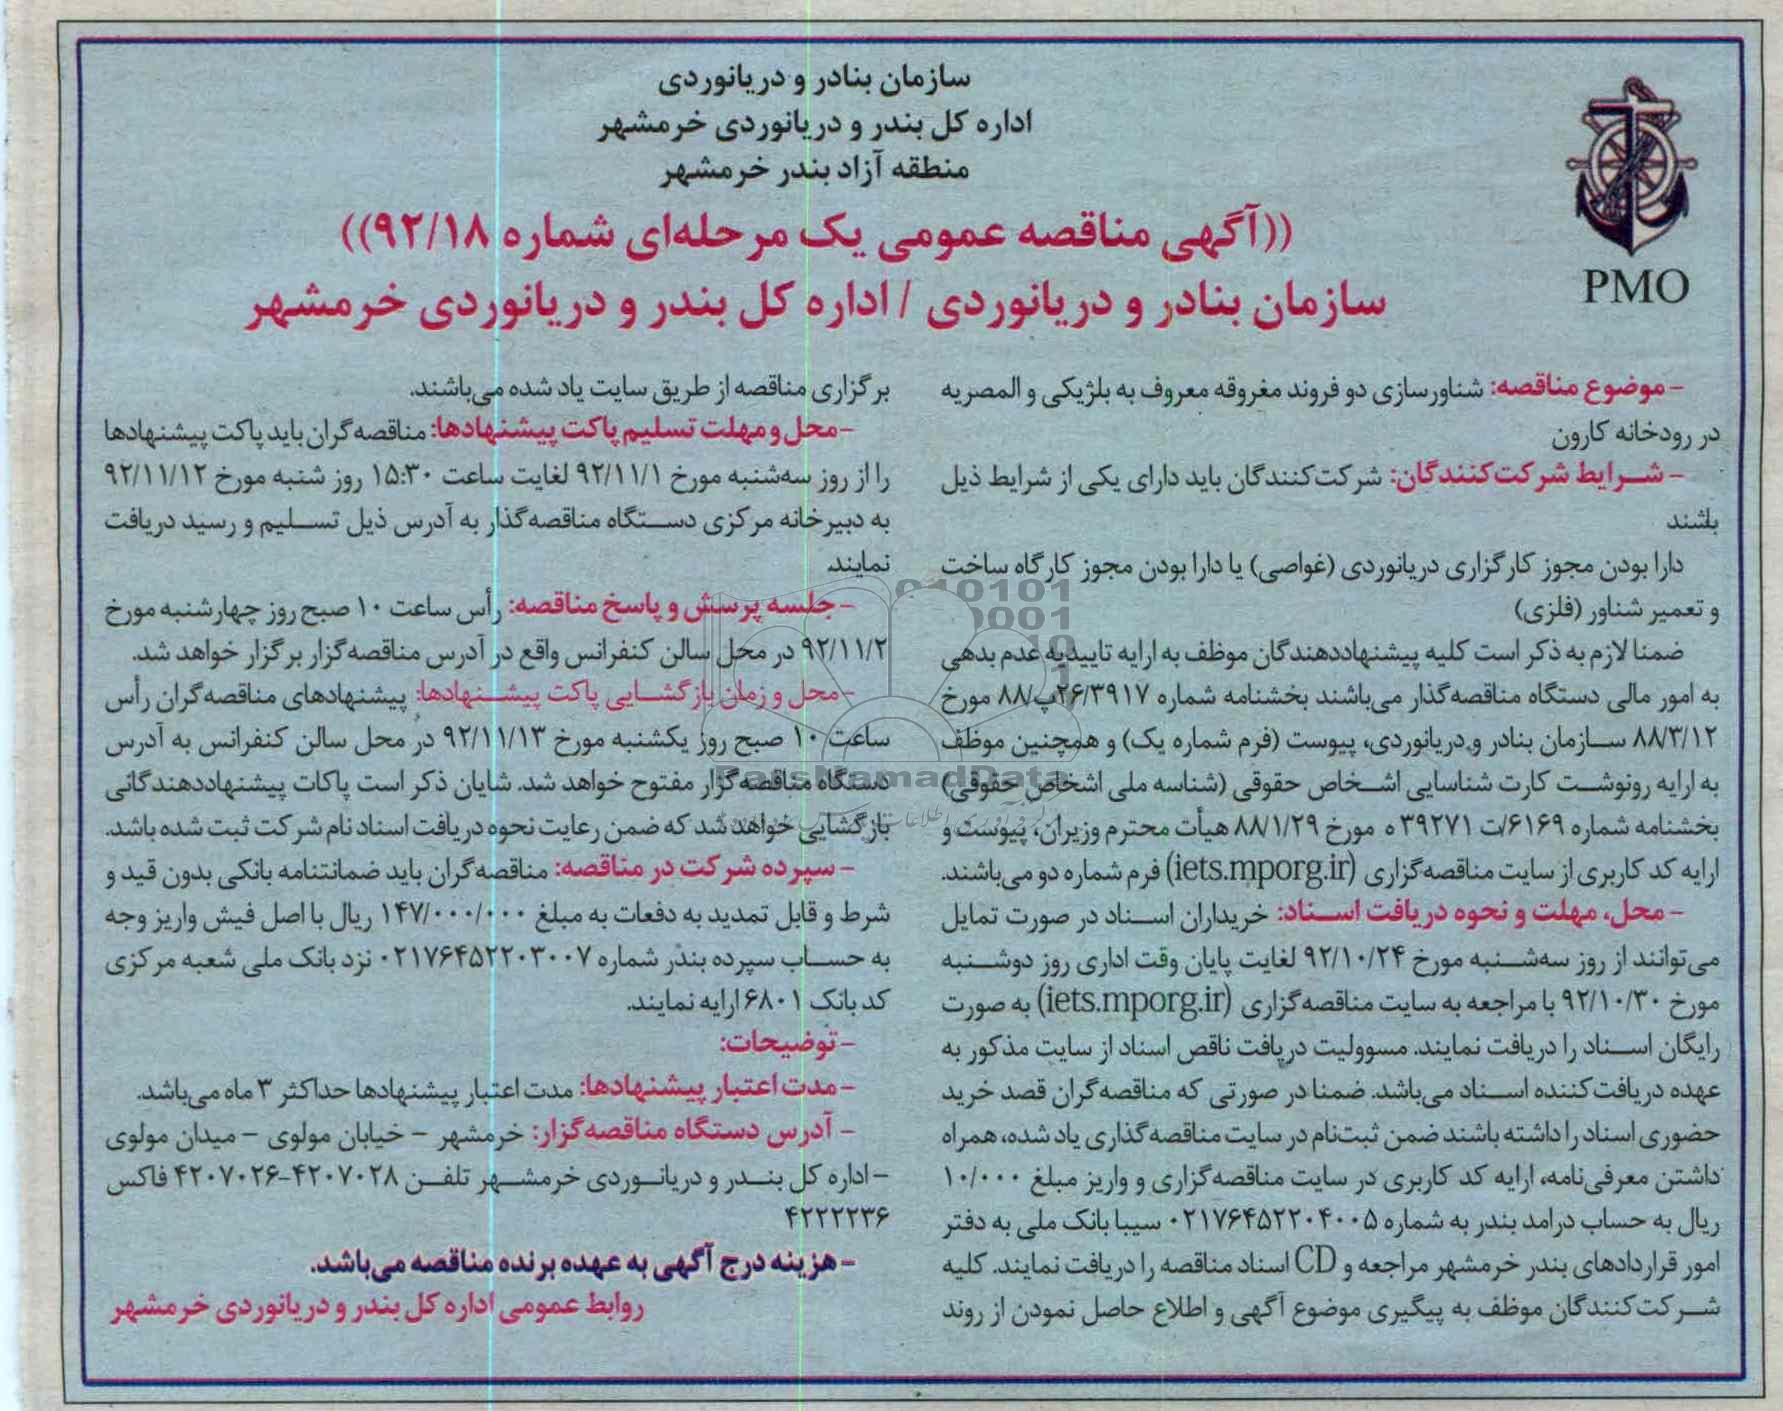 سازمان بنادر و دریانوردی
اداره کل بندر و دریانوردی خرمشهر
منطقه آزاد بندر خرمشهر
PMO
((آگهی مناقصه عمومی یک مرحله‌ای شماره ۹۲/۱۸))
سازمان بنادر و دریانوردی / اداره کل بندر و دریانوردی خرمشهر
- موضوع مناقصه: شناورسازی دو فروند مغروقه معروف به بلژیکی و المصریه
در رودخانه کارون
- شرایط شرکت‌کنندگان: شرکت‌کنندگان باید دارای یکی از شرایط ذیل
باشند
دارا بودن مجوز کارگزاری دریانوردی (غواصی) یا دارا بودن مجوز کارگاه ساخت
و تعمیر شناور (فلزی)
ضمنا لازم به ذکر است کلیه پیشنهاددهندگان موظف به ارایه تاییدیه عدم بدهی
به امور مالی دستگاه مناقصه‌گذار می‌باشند بخشنامه شماره ۲۶/۳۹۱۷پ/۸۸ مورخ
۸۸/۳/۱۲ سازمان بنادر و دریانوردی، پیوست (فرم شماره یک) و همچنین موظف
به ارایه رونوشت کارت شناسایی اشخاص حقوقی (شناسه ملی اشخاص حقوقی)
بخشنامه شماره ۶۱۶۹/ت ۳۹۲۷۱ ه مورخ ۸۸/۱/۲۹ هیأت محترم وزیران، پیوست و
ارایه کد کاربری از سایت مناقصه‌گزاری (iets.mporg.ir) فرم شماره دو می‌باشند.
- محل، مهلت و نحوه دریافت اسناد: خریداران اسناد در صورت تمایل
می‌توانند از روز سه‌شنبه مورخ ۹۲/۱۰/۲۴ لغایت پایان وقت اداری روز دوشنبه
مورخ ۹۲/۱۰/۳۰ با مراجعه به سایت مناقصه‌گزاری (iets.mporg.ir) به صورت
رایگان اسناد را دریافت نمایند. مسوولیت دریافت ناقص اسناد از سایت مذکور به
عهده دریافت‌کننده اسناد می‌باشد. ضمنا در صورتی که مناقصه‌گران قصد خرید
حضوری اسناد را داشته باشند ضمن ثبت‌نام در سایت مناقصه‌گذاری یاد شده، همراه
داشتن معرفی‌نامه، ارایه کد کاربری در سایت مناقصه‌گزاری و واریز مبلغ ۱۰/۰۰۰
ریال به حساب درامد بندر به شماره ۰۲۱۷۶۴۵۲۲۰۴۰۰۵ سیبا بانک ملی به دفتر
امور قراردادهای بندر خرمشهر مراجعه و CD اسناد مناقصه را دریافت نمایند. کلیه
شرکت‌کنندگان موظف به پیگیری موضوع آگهی و اطلاع حاصل نمودن از روند
برگزاری مناقصه از طریق سایت یاد شده می‌باشند.
- محل و مهلت تسلیم پاکت پیشنهادها: مناقصه‌گران باید پاکت پیشنهادها
را از روز سه‌شنبه مورخ ۹۲/۱۱/۱ لغایت ساعت ۱۵:۳۰ روز شنبه مورخ ۹۲/۱۱/۱۲
به دبیرخانه مرکزی دستگاه مناقصه‌گذار به آدرس ذیل تسلیم و رسید دریافت
نمایند.
- جلسه پرسش و پاسخ مناقصه: رأس ساعت ۱۰ صبح روز چهارشنبه مورخ
۹۲/۱۱/۲ در محل سالن کنفرانس واقع در آدرس مناقصه‌گزار برگزار خواهد شد.
- محل و زمان بازگشایی پاکت پیشنهادها: پیشنهادهای مناقصه‌گران رأس
ساعت ۱۰ صبح روز یکشنبه مورخ ۹۲/۱۱/۱۳ در محل سالن کنفرانس به آدرس
دستگاه مناقصه‌گزار مفتوح خواهد شد. شایان ذکر است پاکات پیشنهاددهندگانی
بازگشایی خواهد شد که ضمن رعایت نحوه دریافت اسناد نام شرکت ثبت شده باشد.
- سپرده شرکت در مناقصه: مناقصه‌گران باید ضمانتنامه بانکی بدون قید و
شرط و قابل تمدید به دفعات به مبلغ ۱۴۷/۰۰۰/۰۰۰ ریال با اصل فیش واریز وجه
به حساب سپرده بندر شماره ۰۲۱۷۶۴۵۲۲۰۳۰۰۷ نزد بانک ملی شعبه مرکزی
کد بانک ۶۸۰۱ ارایه نمایند.
- توضیحات:
- مدت اعتبار پیشنهادها: مدت اعتبار پیشنهادها حداکثر ۳ ماه می‌باشد.
- آدرس دستگاه مناقصه‌گزار: خرمشهر - خیابان مولوی - میدان مولوی
- اداره کل بندر و دریانوردی خرمشهر تلفن ۴۲۰۷۰۲۸-۴۲۰۷۰۲۶ فاکس
۴۲۲۲۲۳۶
- هزینه درج آگهی به عهده برنده مناقصه می‌باشد.
روابط عمومی اداره کل بندر و دریانوردی خرمشهر
ParsNamadData